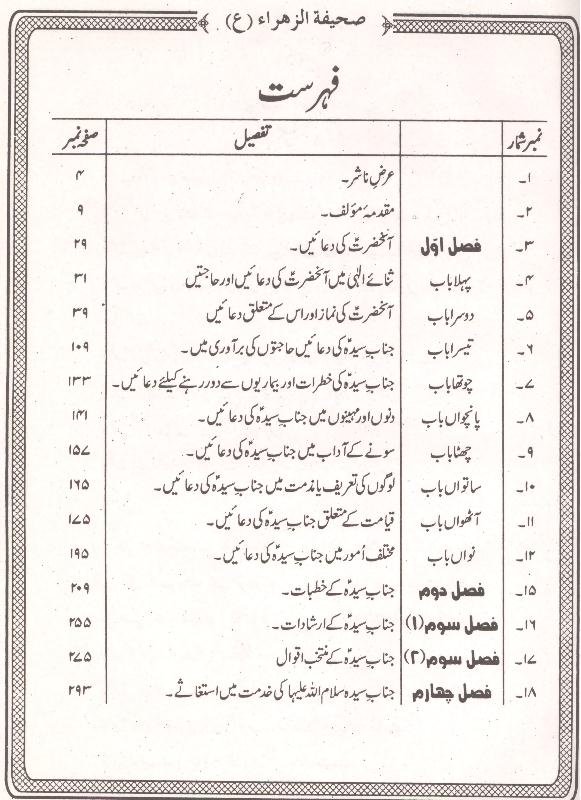 صحیفۃ الزھراء (ع)
فہرست
نمبر شمار تفصیل صفحہ نمبر
۱۔ عرضِ ناشر۔ ۴
۲۔ مقدمۂ مؤلف۔ ۹
۳۔ فصل اوّل آنحضرتؐ کی دعائیں۔ ۲۹
۴۔ پہلا باب ثنائے الٰہی میں آنحضرتؐ کی دعائیں اور حاجتیں ۳۱
۵۔ دوسرا باب آنحضرتؐ کی نماز اور اس کے متعلق دعائیں ۳۹
۶۔ تیسرا باب جنابِ سیدہؑ کی دعائیں حاجتوں کی برآوری میں۔ ۱۰۹
۷۔ چوتھا باب جنابِ سیدہؑ کی خطرات اور بیماریوں سے دور رہنے کیلئے دعائیں۔ ۱۳۳
۸۔ پانچواں باب دنوں اور مہینوں میں جنابِ سیدہؑ کی دعائیں۔ ۱۴۱
۹۔ چھٹا باب سونے کے آداب میں جنابِ سیدہؑ کی دعائیں۔ ۱۵۷
۱۰۔ ساتواں باب لوگوں کی تعریف یا مذمت میں جنابِ سیدہؑ کی دعائیں۔ ۱۶۵
۱۱۔ آٹھواں باب قیامت کے متعلق جنابِ سیدہؑ کی دعائیں۔ ۱۷۵
۱۲۔ نواں باب مختلف اُمور میں جنابِ سیدہؑ کی دعائیں۔ ۱۹۵
۱۵۔ فصل دوم جنابِ سیدہؑ کے خطبات۔ ۲۰۹
۱۶۔ فصل سوم (۱) جنابِ سیدہؑ کے ارشادات۔ ۲۵۵
۱۷۔ فصل سوم (۲) جنابِ سیدہؑ کے منتخب اقوال ۲۷۵
۱۸۔ فصل چہارم جنابِ سیدہ سلام اللہ علیہا کی خدمت میں استغاثے۔ ۲۹۳